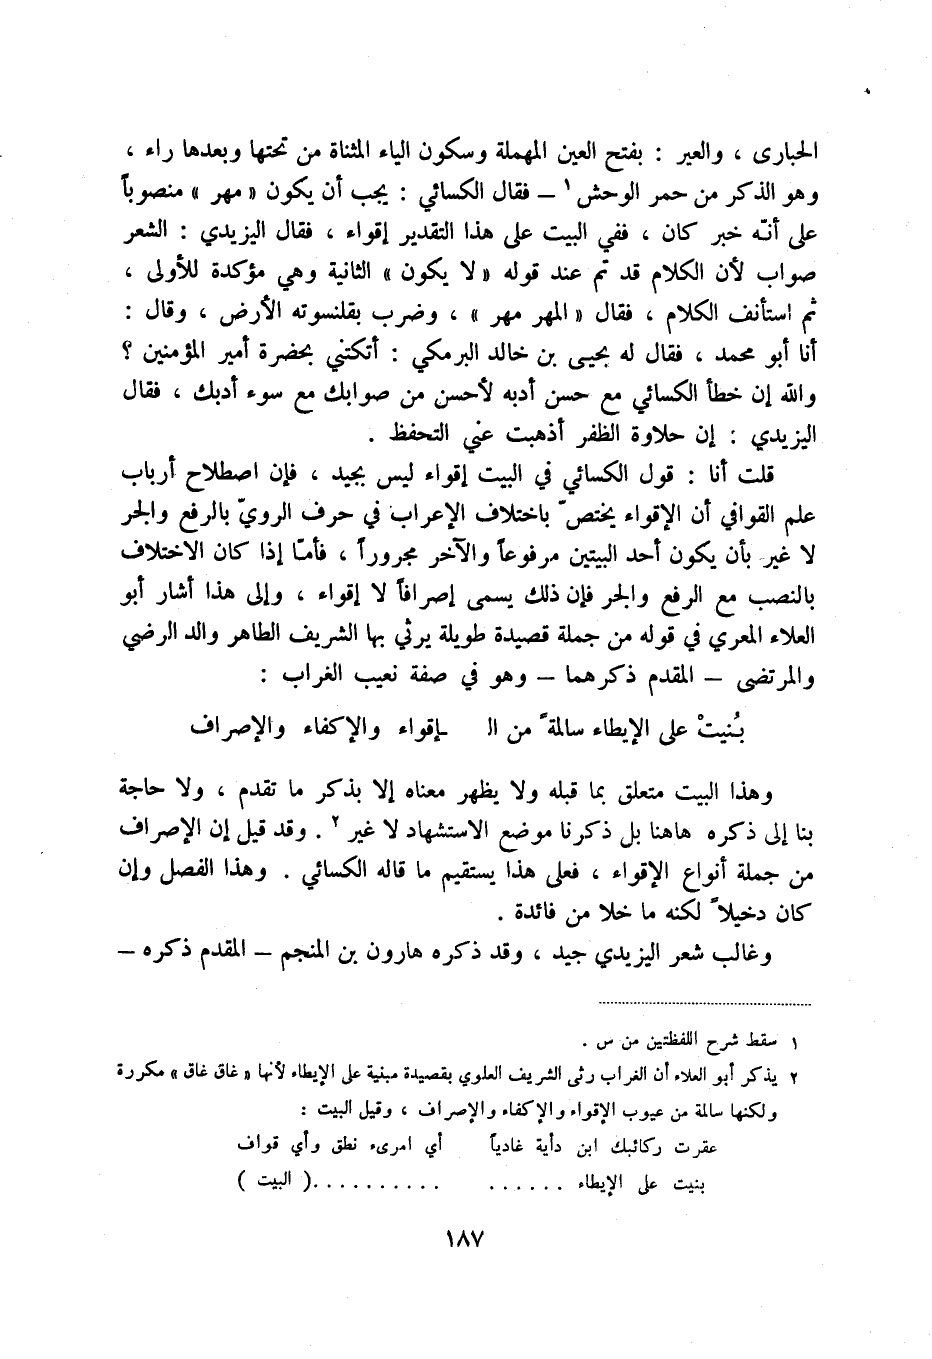 الحبارى ، والعير : بفتح العين المهملة وسكون الياء المثناة من تحتها وبعدها راء ،
وهو الذكر من حمر الوحش ١ – فقال الكسائي : يجب أن يكون « مهر » منصوباً
على أنّه خبر كان ، ففي البيت على هذا التقدير إقواء ، فقال اليزيدي : الشعر
صواب لأن الكلام قد تم عند قوله « لا يكون » الثانية وهي مؤكدة للأولى ،
ثم استأنف الكلام ، فقال « المهر مهر » ، وضرب بقلنسوته الأرض ، وقال :
أنا أبو محمد ، فقال له يحيى بن خالد البرمكي : أتكتني بحضرة أمير المؤمنين ؟
والله إن خطأ الكسائي مع حسن أدبه لأحسن من صوابك مع سوء أدبك ، فقال
اليزيدي : إن حلاوة الظفر أذهبت عني التحفظ .
قلت أنا : قول الكسائي في البيت إقواء ليس بجيد ، فإن اصطلاح أرباب
علم القوافي أن الإقواء يختصّ باختلاف الإعراب في حرف الرويّ بالرفع والجر
لا غير بأن يكون أحد البيتين مرفوعاً والآخر مجروراً ، فأمّا إذا كان الاختلاف
بالنصب مع الرفع والجر فإن ذلك يسمى إصرافاً لا إقواء ، وإلى هذا أشار أبو
العلاء المعري في قوله من جملة قصيدة طويلة يرثي بها الشريف الطاهر والد الرضي
والمرتضى – المقدم ذكرهما – وهو في صفة نعيب الغراب :
بُنيتْ على الإيطاء سالمةً من الـ ـإقواء والإكفاء والإصراف
وهذا البيت متعلق بما قبله ولا يظهر معناه إلا بذكر ما تقدم ، ولا حاجة
بنا إلى ذكره هاهنا بل ذكرنا موضع الاستشهاد لا غير ٢ . وقد قيل إن الإصراف
من جملة أنواع الإقواء ، فعلى هذا يستقيم ما قاله الكسائي . وهذا الفصل وإن
كان دخيلاً لكنه ما خلا من فائدة .
وغالب شعر اليزيدي جيد ، وقد ذكره هارون بن المنجم – المقدم ذكره –
١ سقط شرح اللفظتين من س .
٢ يذكر أبو العلاء أن الغراب رثى الشريف العلوي بقصيدة مبنية على الإيطاء لأنها « غاق غاق » مكررة
ولكنها سالمة من عيوب الإقواء والإكفاء والإصراف ، وقيل البيت :
عقرت ركائبك ابن دأية غادياً أي امرىء نطق وأي قواف
بنيت على الإيطاء ...... ..........( البيت )
١٨٧